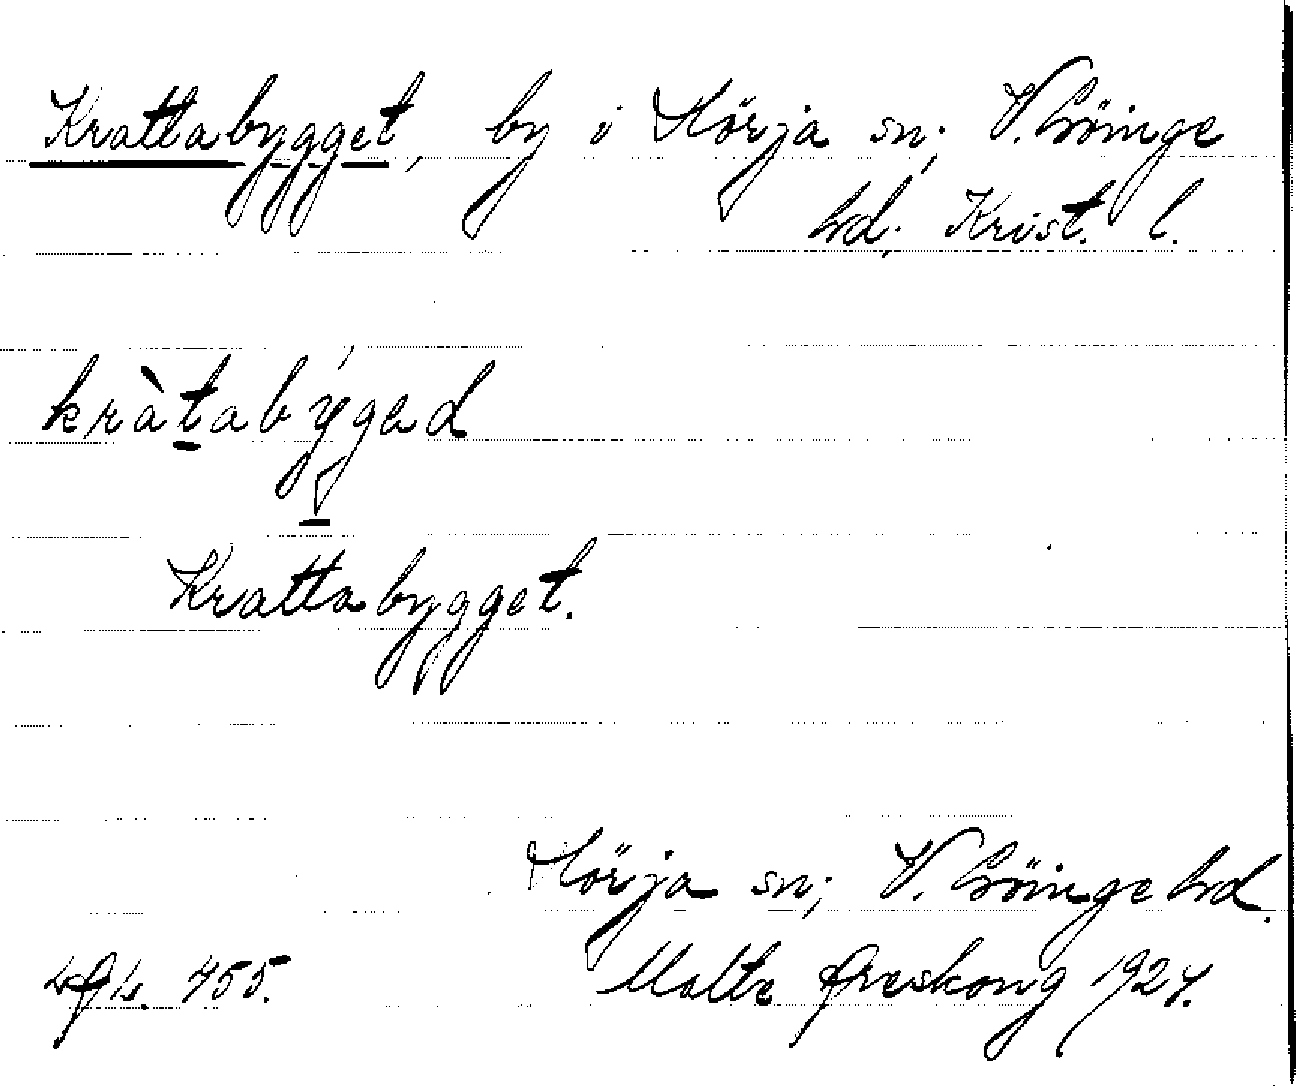 Krattabygget, by i Hörja sn; V. Göinge
hd; Krist. l.
kràtabýgəd
Krattabygget.
Hörja sn; V. Göinge hd.
455. Malte Areskoug 1924.